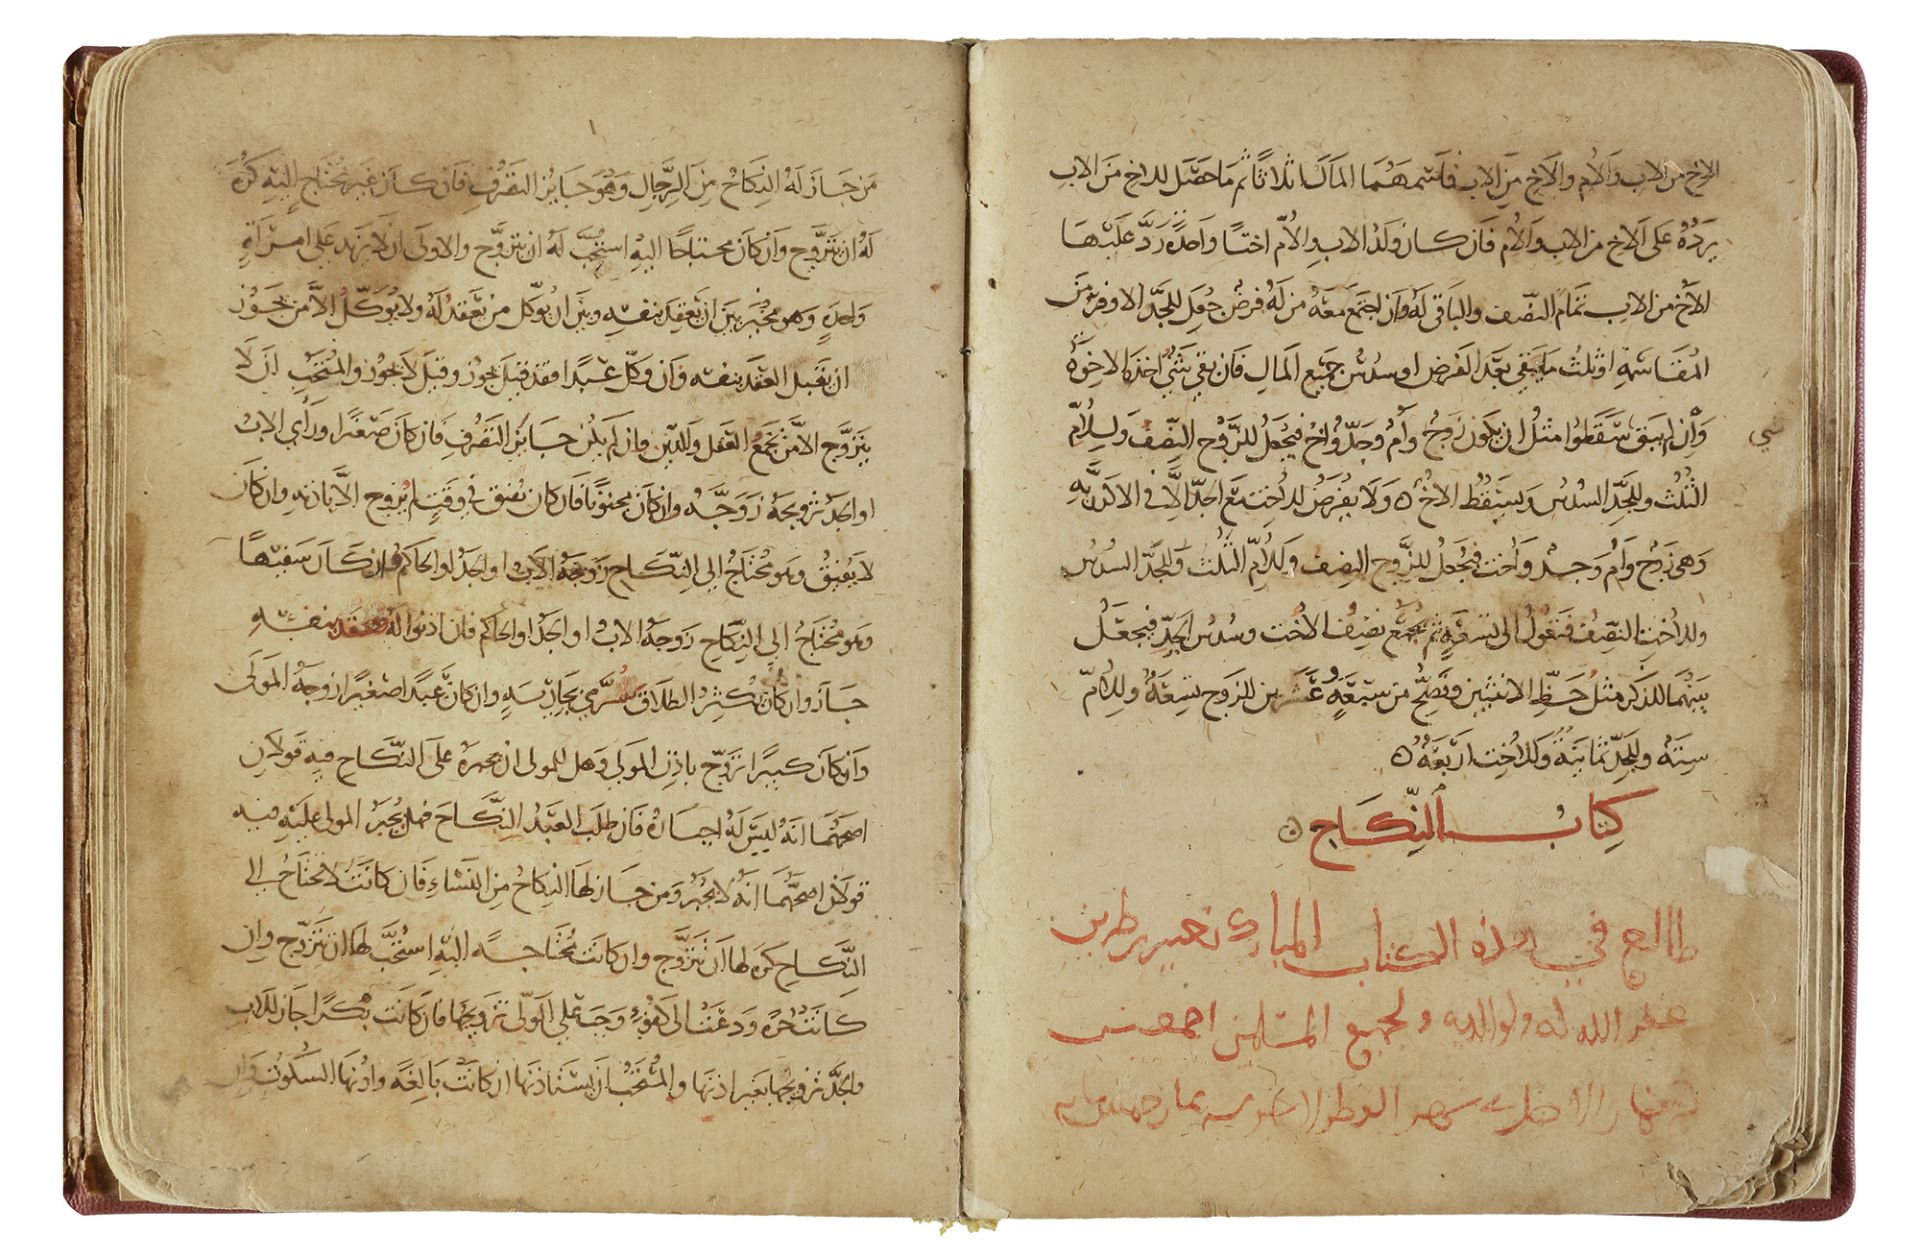 الاخ من الاب والام والاخ من الاب قاسمهما المال اثلاثا ثم ما حصل للاخ من الاب
يرده على الاخ من الاب والام فان كان ولد الاب والام اختا واحدة رد عليها
الاخ من الاب تمام النصف والباقي له وان اجتمع معه من له فرض جعل للجد الاوفر من
المقاسمة او ثلث ما يبقى بعد الفرض او سدس جميع المال فان بقي شي اخذه الاخوة
وان لم يبق سقطوا مثل ان يكون زوج وام وجد واخ فيجعل للزوج النصف وللام
شي
الثلث وللجد السدس ويسقط الاخ ولا يفرض للاخت مع الجد الا في الاكدرية
وهي زوج وام وجد واخت فيجعل للزوج النصف وللام الثلث وللجد السدس
وللاخت النصف فتعول الى تسعة ثم يجمع نصف الاخت وسدس الجد فيجعل
بينهما للذكر مثل حظ الانثيين وتصح من سبعة وعشرين للزوج تسعة وللام
ستة وللجد ثمانية وللاخت اربعة
كتاب النكاح
طالع في هذه الكتاب المبارك
غفر الله له ولوالديه ولجميع المسلمين اجمعين
من جاز له النكاح من الرجال وهو جايز التصرف فان كان غير محتاج اليه كره
له ان يتزوج وان كان محتاجا اليه استحب له ان يتزوج والاولى ان لا يزيد على امراة
واحدة وهو مخير بين ان يعقد بنفسه وبين ان يوكل من يعقد له ولا يوكل الا من يجوز
ان يقبل العقد بنفسه وان وكل عبدا فقد قيل يجوز وقيل لا يجوز والمستحب ان لا
يتزوج الا من يجمع العقل والدين وان لم يكن جايز التصرف فان كان صغيرا وراى الاب
او الجد تزويجه زوجه وان كان مجنونا فان كان يفيق في وقت لم يزوج الا باذنه وان كان
لا يفيق وهو محتاج الى النكاح زوجه الاب او الجد او الحاكم وان كان سفيها
وهو محتاج الى النكاح زوجه الاب او الجد او الحاكم فان اذنوا له فعقد بنفسه
جاز وان كان يكثر الطلاق سري بجارية وان كان عبدا صغيرا زوجه المولى
وان كان كبيرا تزوج باذن المولى وهل للمولى ان يجبره على النكاح فيه قولان
اصحهما انه ليس له اجباره فان طلب العبد النكاح فهل يجبر المولى عليه فيه
قولان اصحهما انه لا يجبر ومن جاز لها النكاح من النساء فان كانت لا تحتاج الى
النكاح كره لها ان تتزوج وان كانت محتاجة اليه استحب لها ان تتزوج وان
كانت حرة ودعت الى كفو وجب على الولي تزويجها فان كانت بكرا جاز للاب
والجد تزويجها بغير اذنها والمستحب ان يستاذنها ان كانت بالغة واذنها السكوت وان